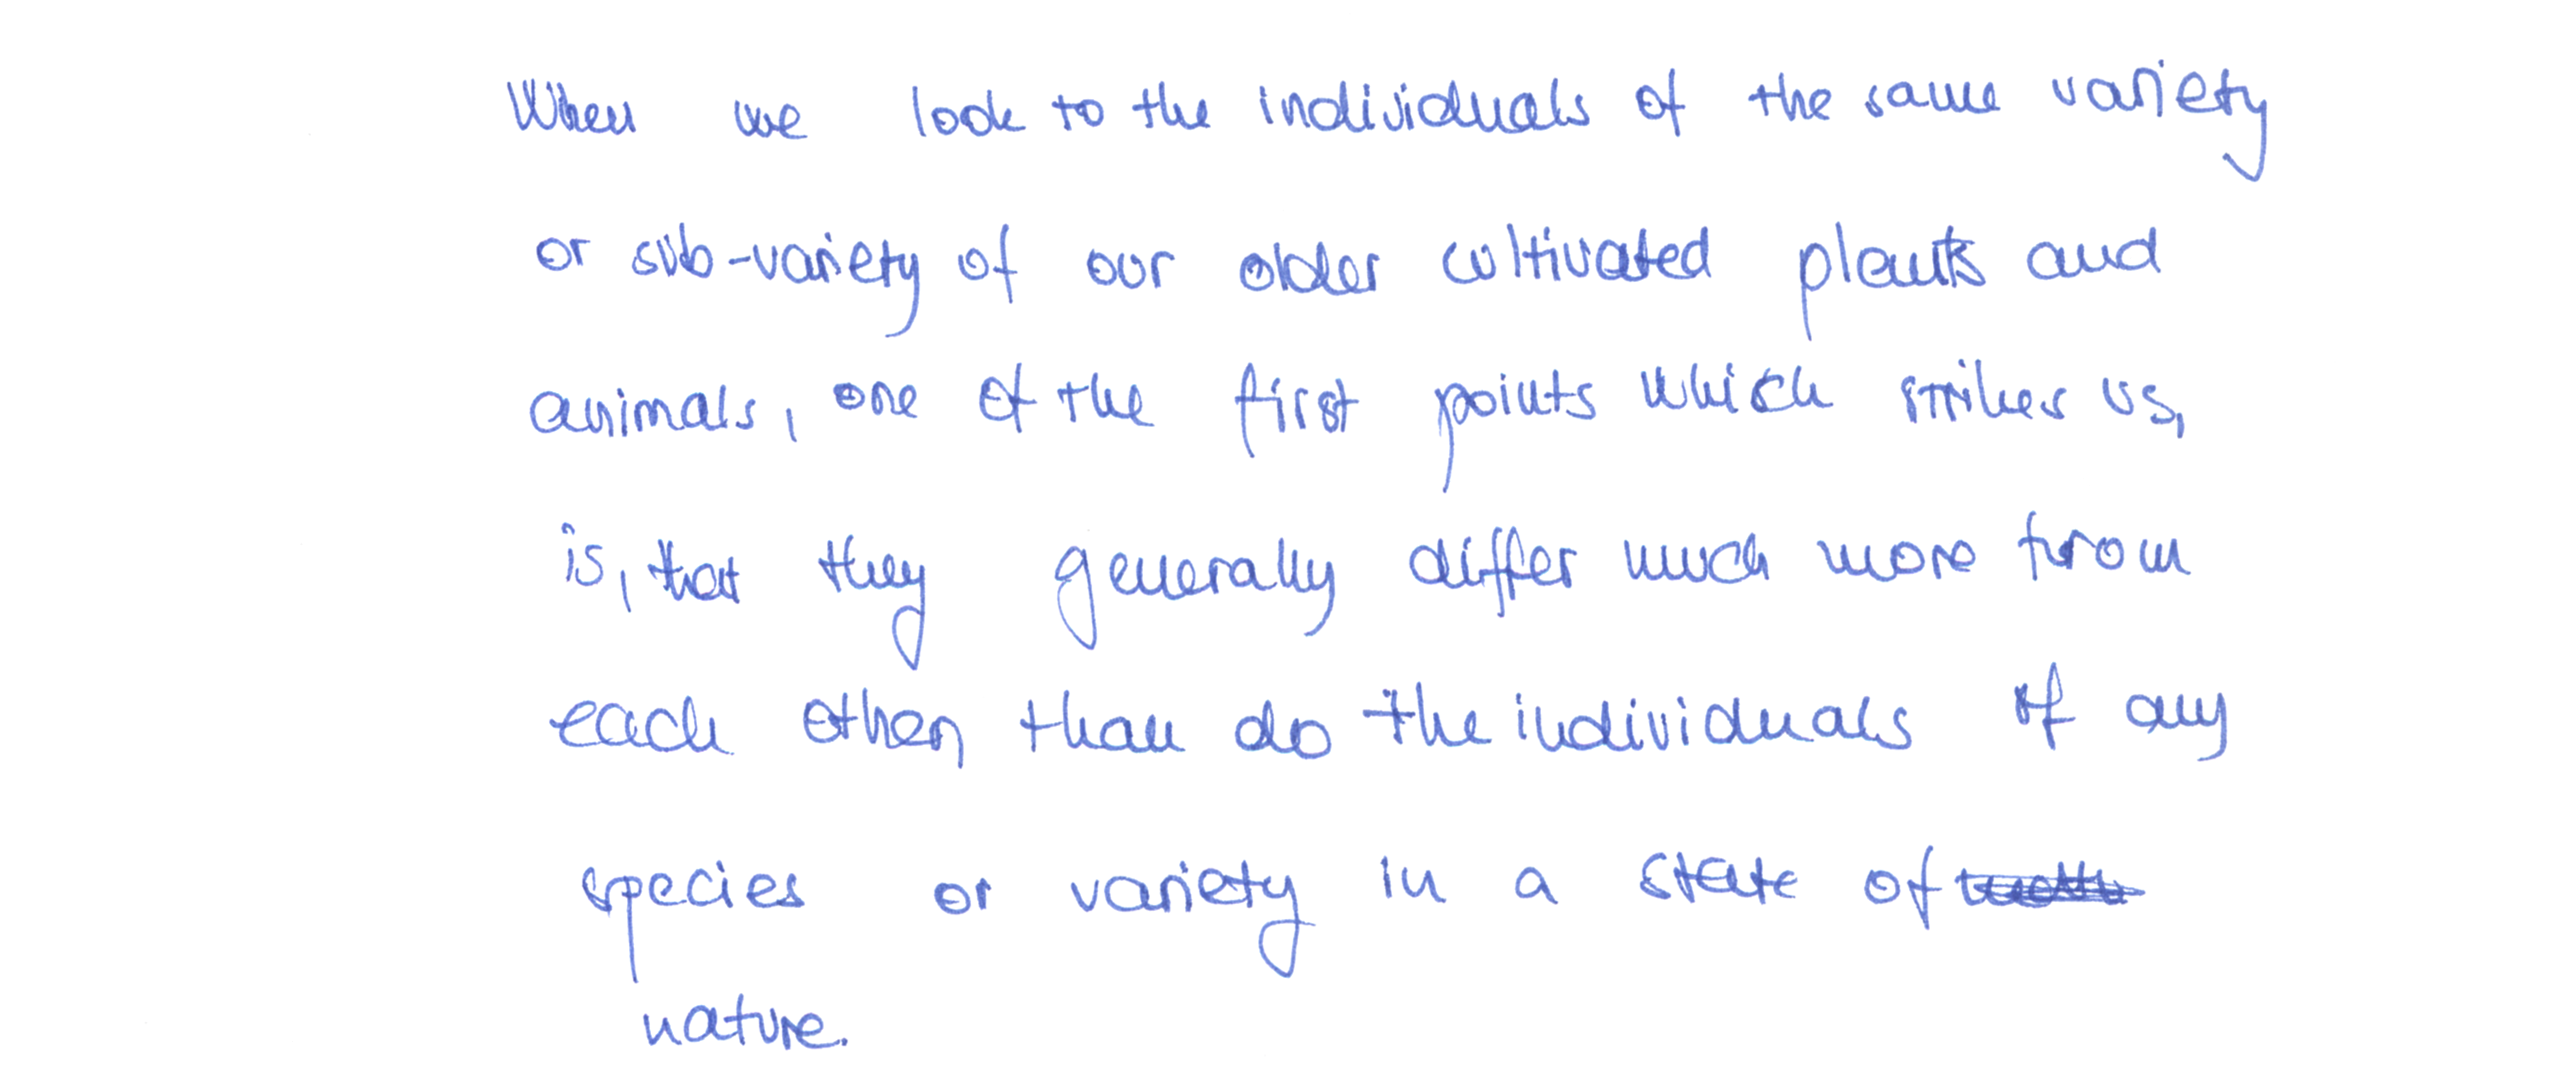 When we look to the individuals of the same variety
or sub-variety of our older cultivated plants and
animals, one of the first points which strikes us,
is, that they generally differ much more from
each other, than do the individuals of any
species or variety in a state of
nature.